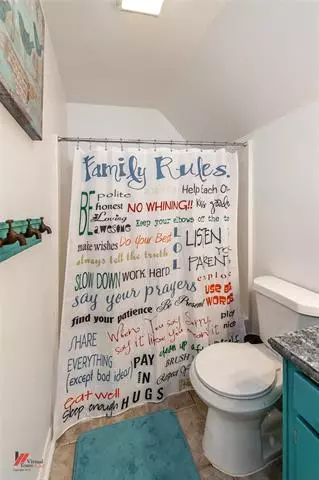 Family Rules.
polite
Help Each O
BE
honest
NO WHINING!!
Loving
awesome
Keep your elbows
make wishes
Do Your Best
LOL
LISTEN
always tell the truth
TO
PARENT
SLOW DOWN
work hard
explo
say your prayers
use
words
find your patience
Be Present
play
SHARE
When You Say Sorry
say it like you
EVERYTHING
clean up
(except bad ideas)
PAY
IN
HUGS
BRUSH
Respect
eat well
Sleep enough
Virtual
Tours